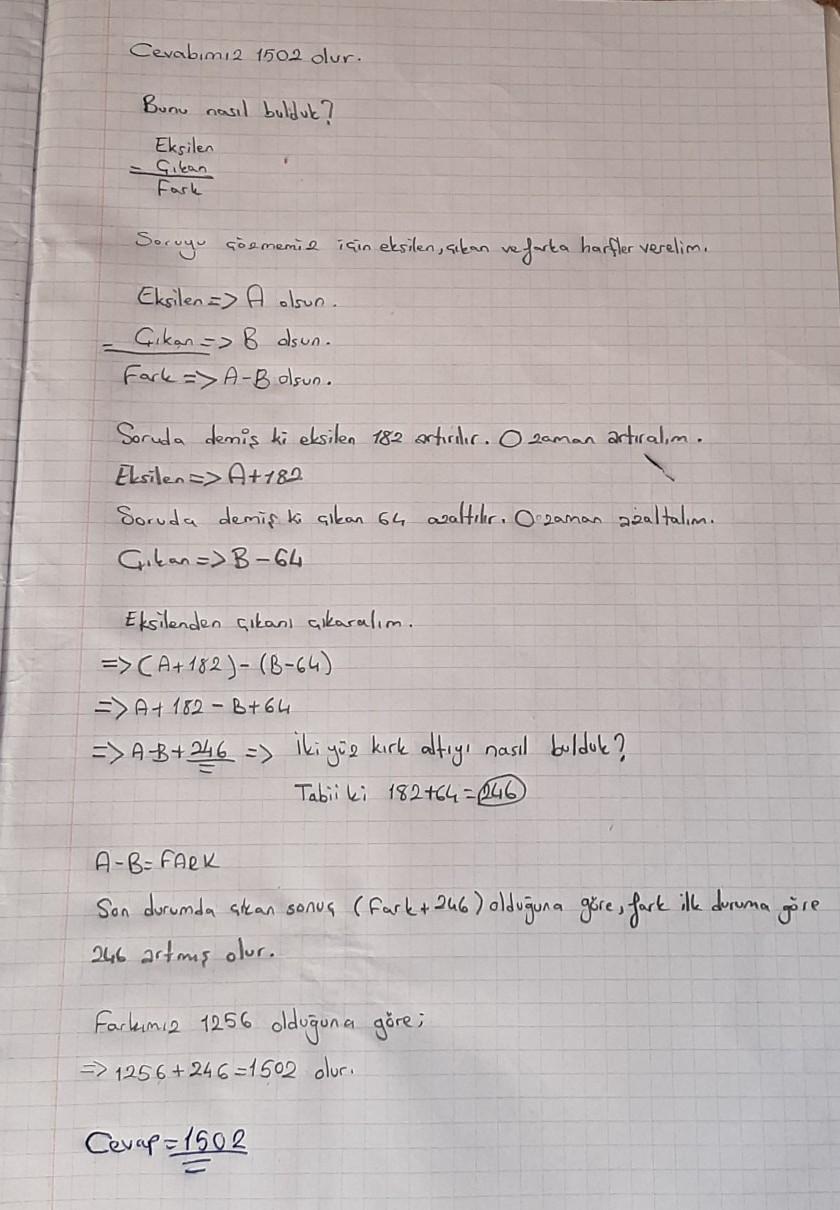 Cevabımız 1502 olur.
Bunu nasıl bulduk?
Eksilen
- Çıkan
Fark
Soruyu çözmemiz için eksilen, çıkan ve farka harfler verelim.
Eksilen => A olsun.
- Çıkan => B olsun.
Fark => A-B olsun.
Soruda demiş ki eksilen 182 artırılır. O zaman artıralım.
Eksilen => A+182
Soruda demiş ki çıkan 64 azaltılır. O zaman azaltalım.
Çıkan => B-64
Eksilenden çıkanı çıkaralım.
=> (A+182)-(B-64)
=> A+182-B+64
=> A-B+246 => İki yüz kırk altıyı nasıl bulduk?
Tabii ki 182+64=246
A-B=FARK
Son durumda çıkan sonuç (Fark+246) olduğuna göre, fark ilk duruma göre
246 artmış olur.
Farkımız 1256 olduğuna göre;
=> 1256+246=1502 olur.
Cevap=1502